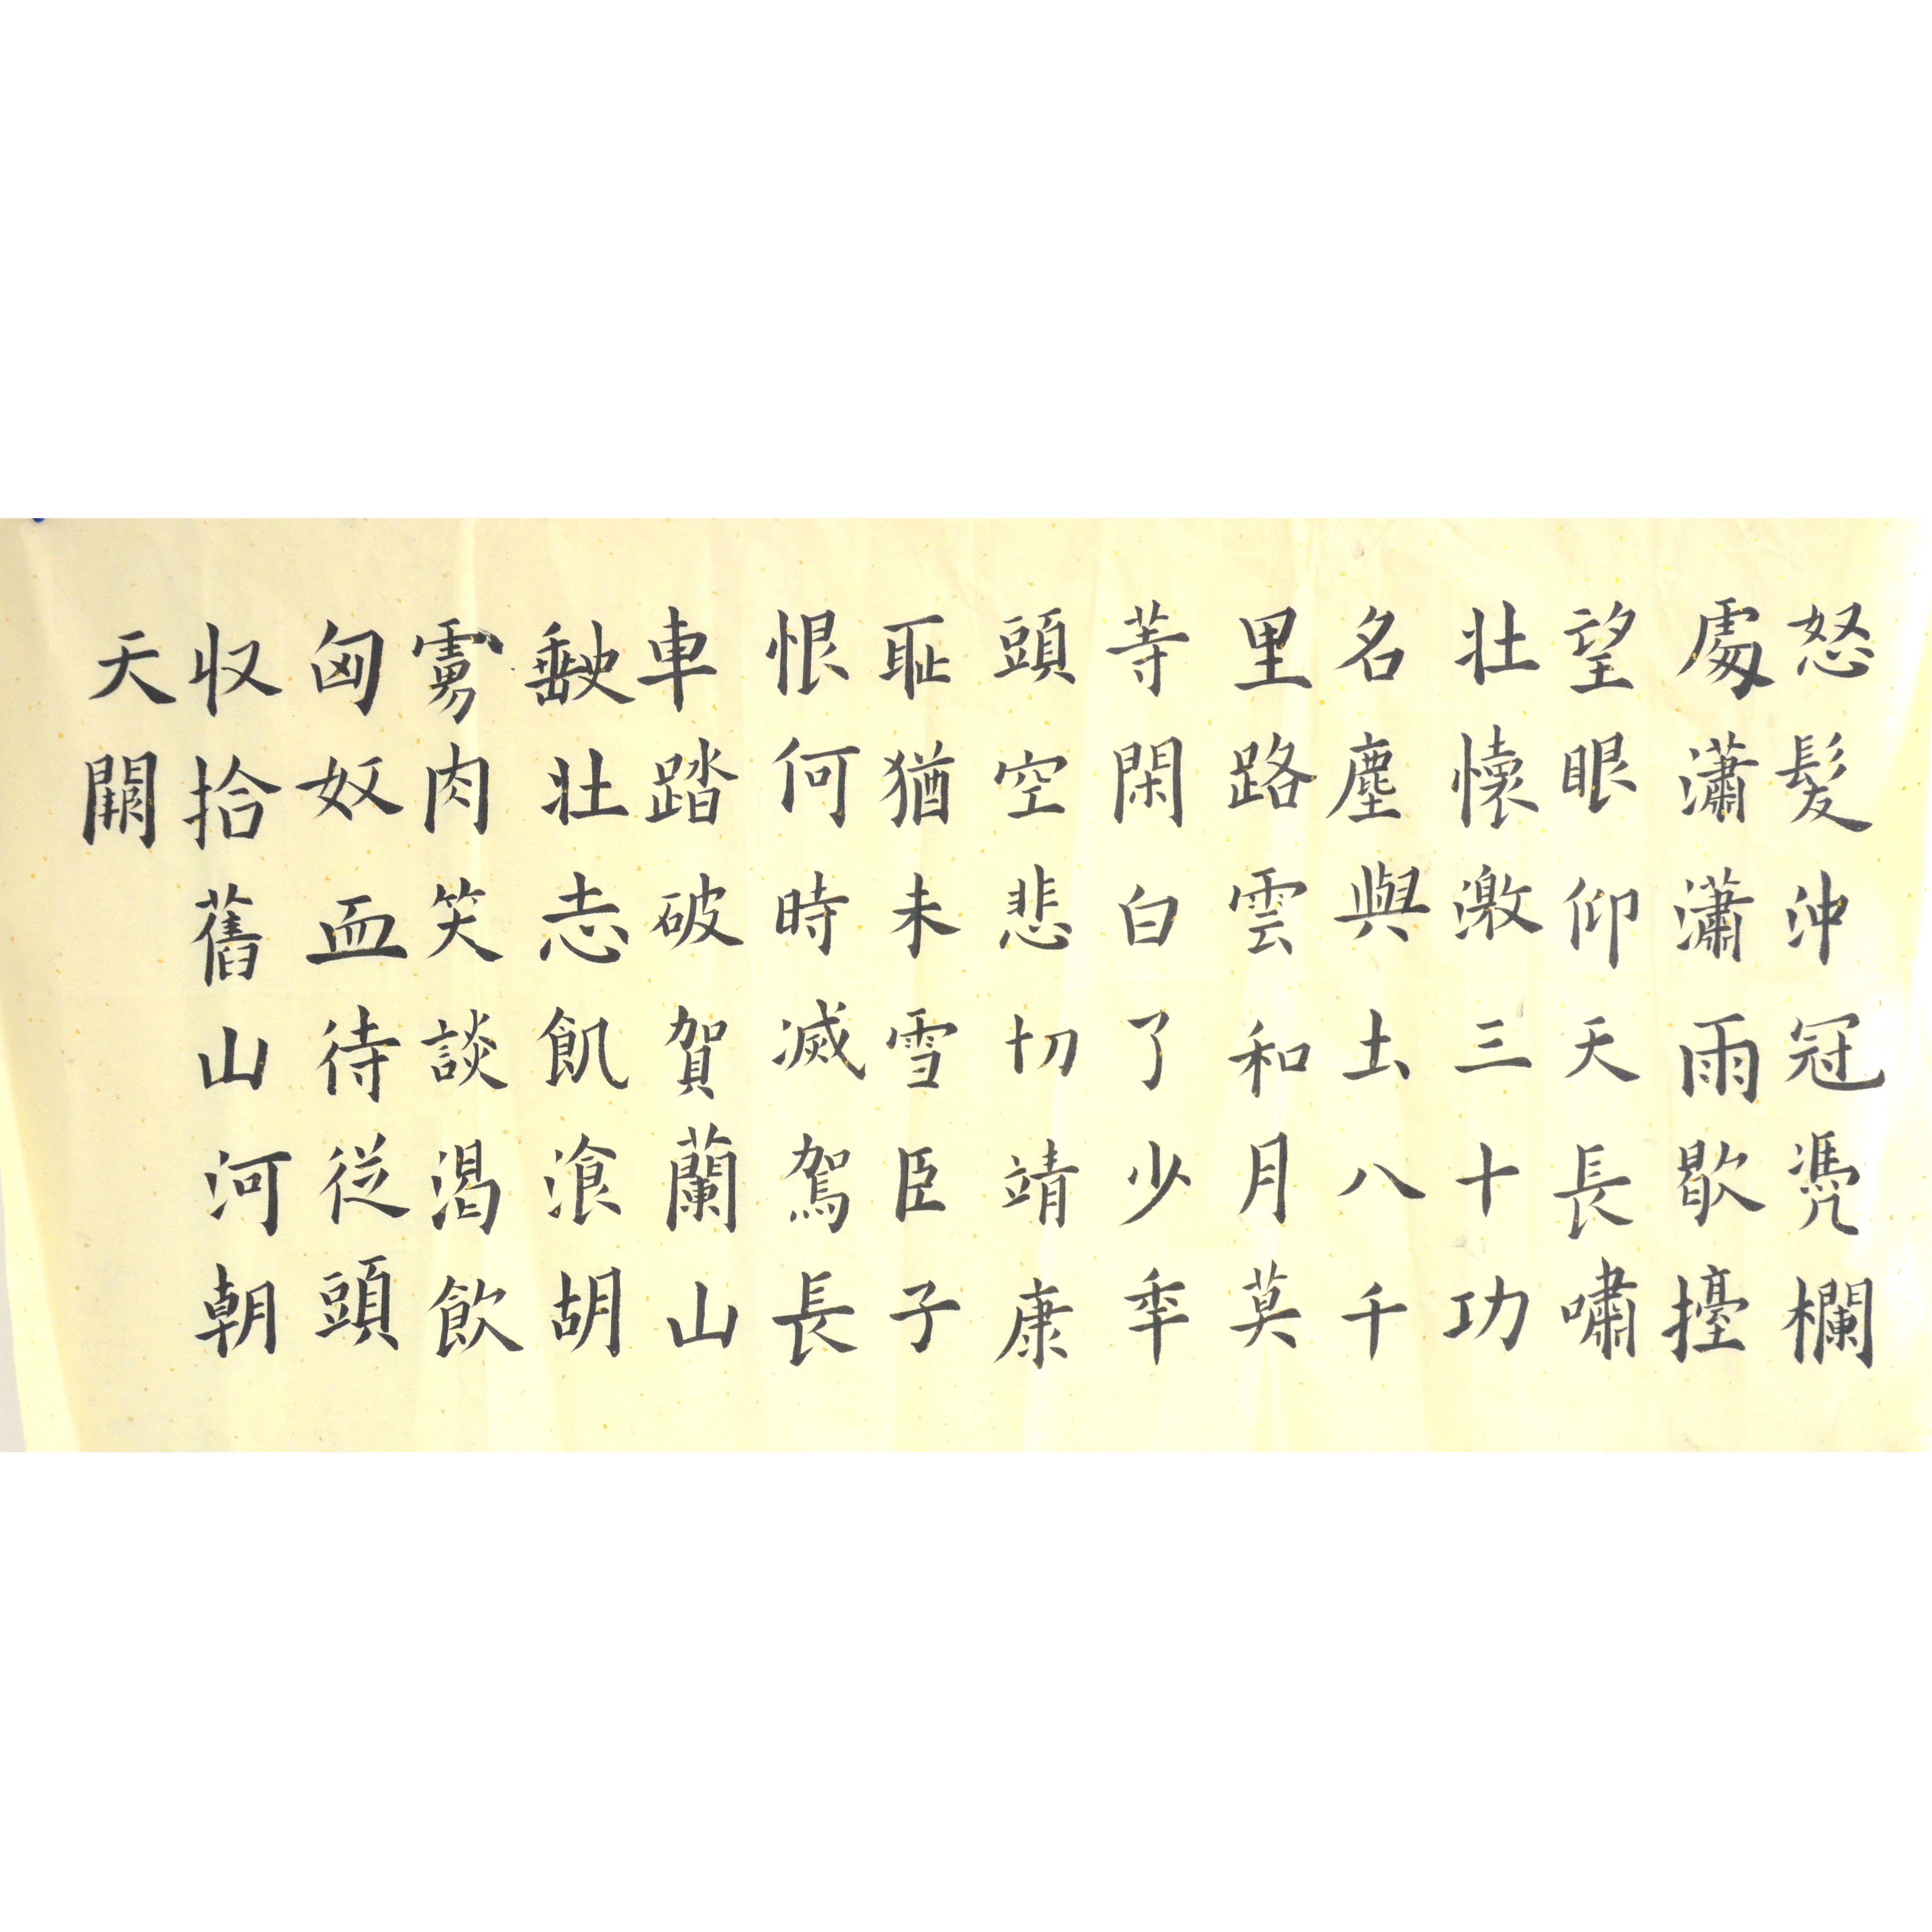 怒髮沖冠凴欄
處瀟瀟雨歇擡
望眼仰天長嘯
壯懷激三十功
名塵與土八千
里路雲和月莫
等閑白了少年
頭空悲切靖康
耻猶未雪臣子
恨何時滅駕長
車踏破賀蘭山
缺壯志飢湌胡
虜肉笑談渴飲
匈奴血待從頭
収拾舊山河朝
天闕